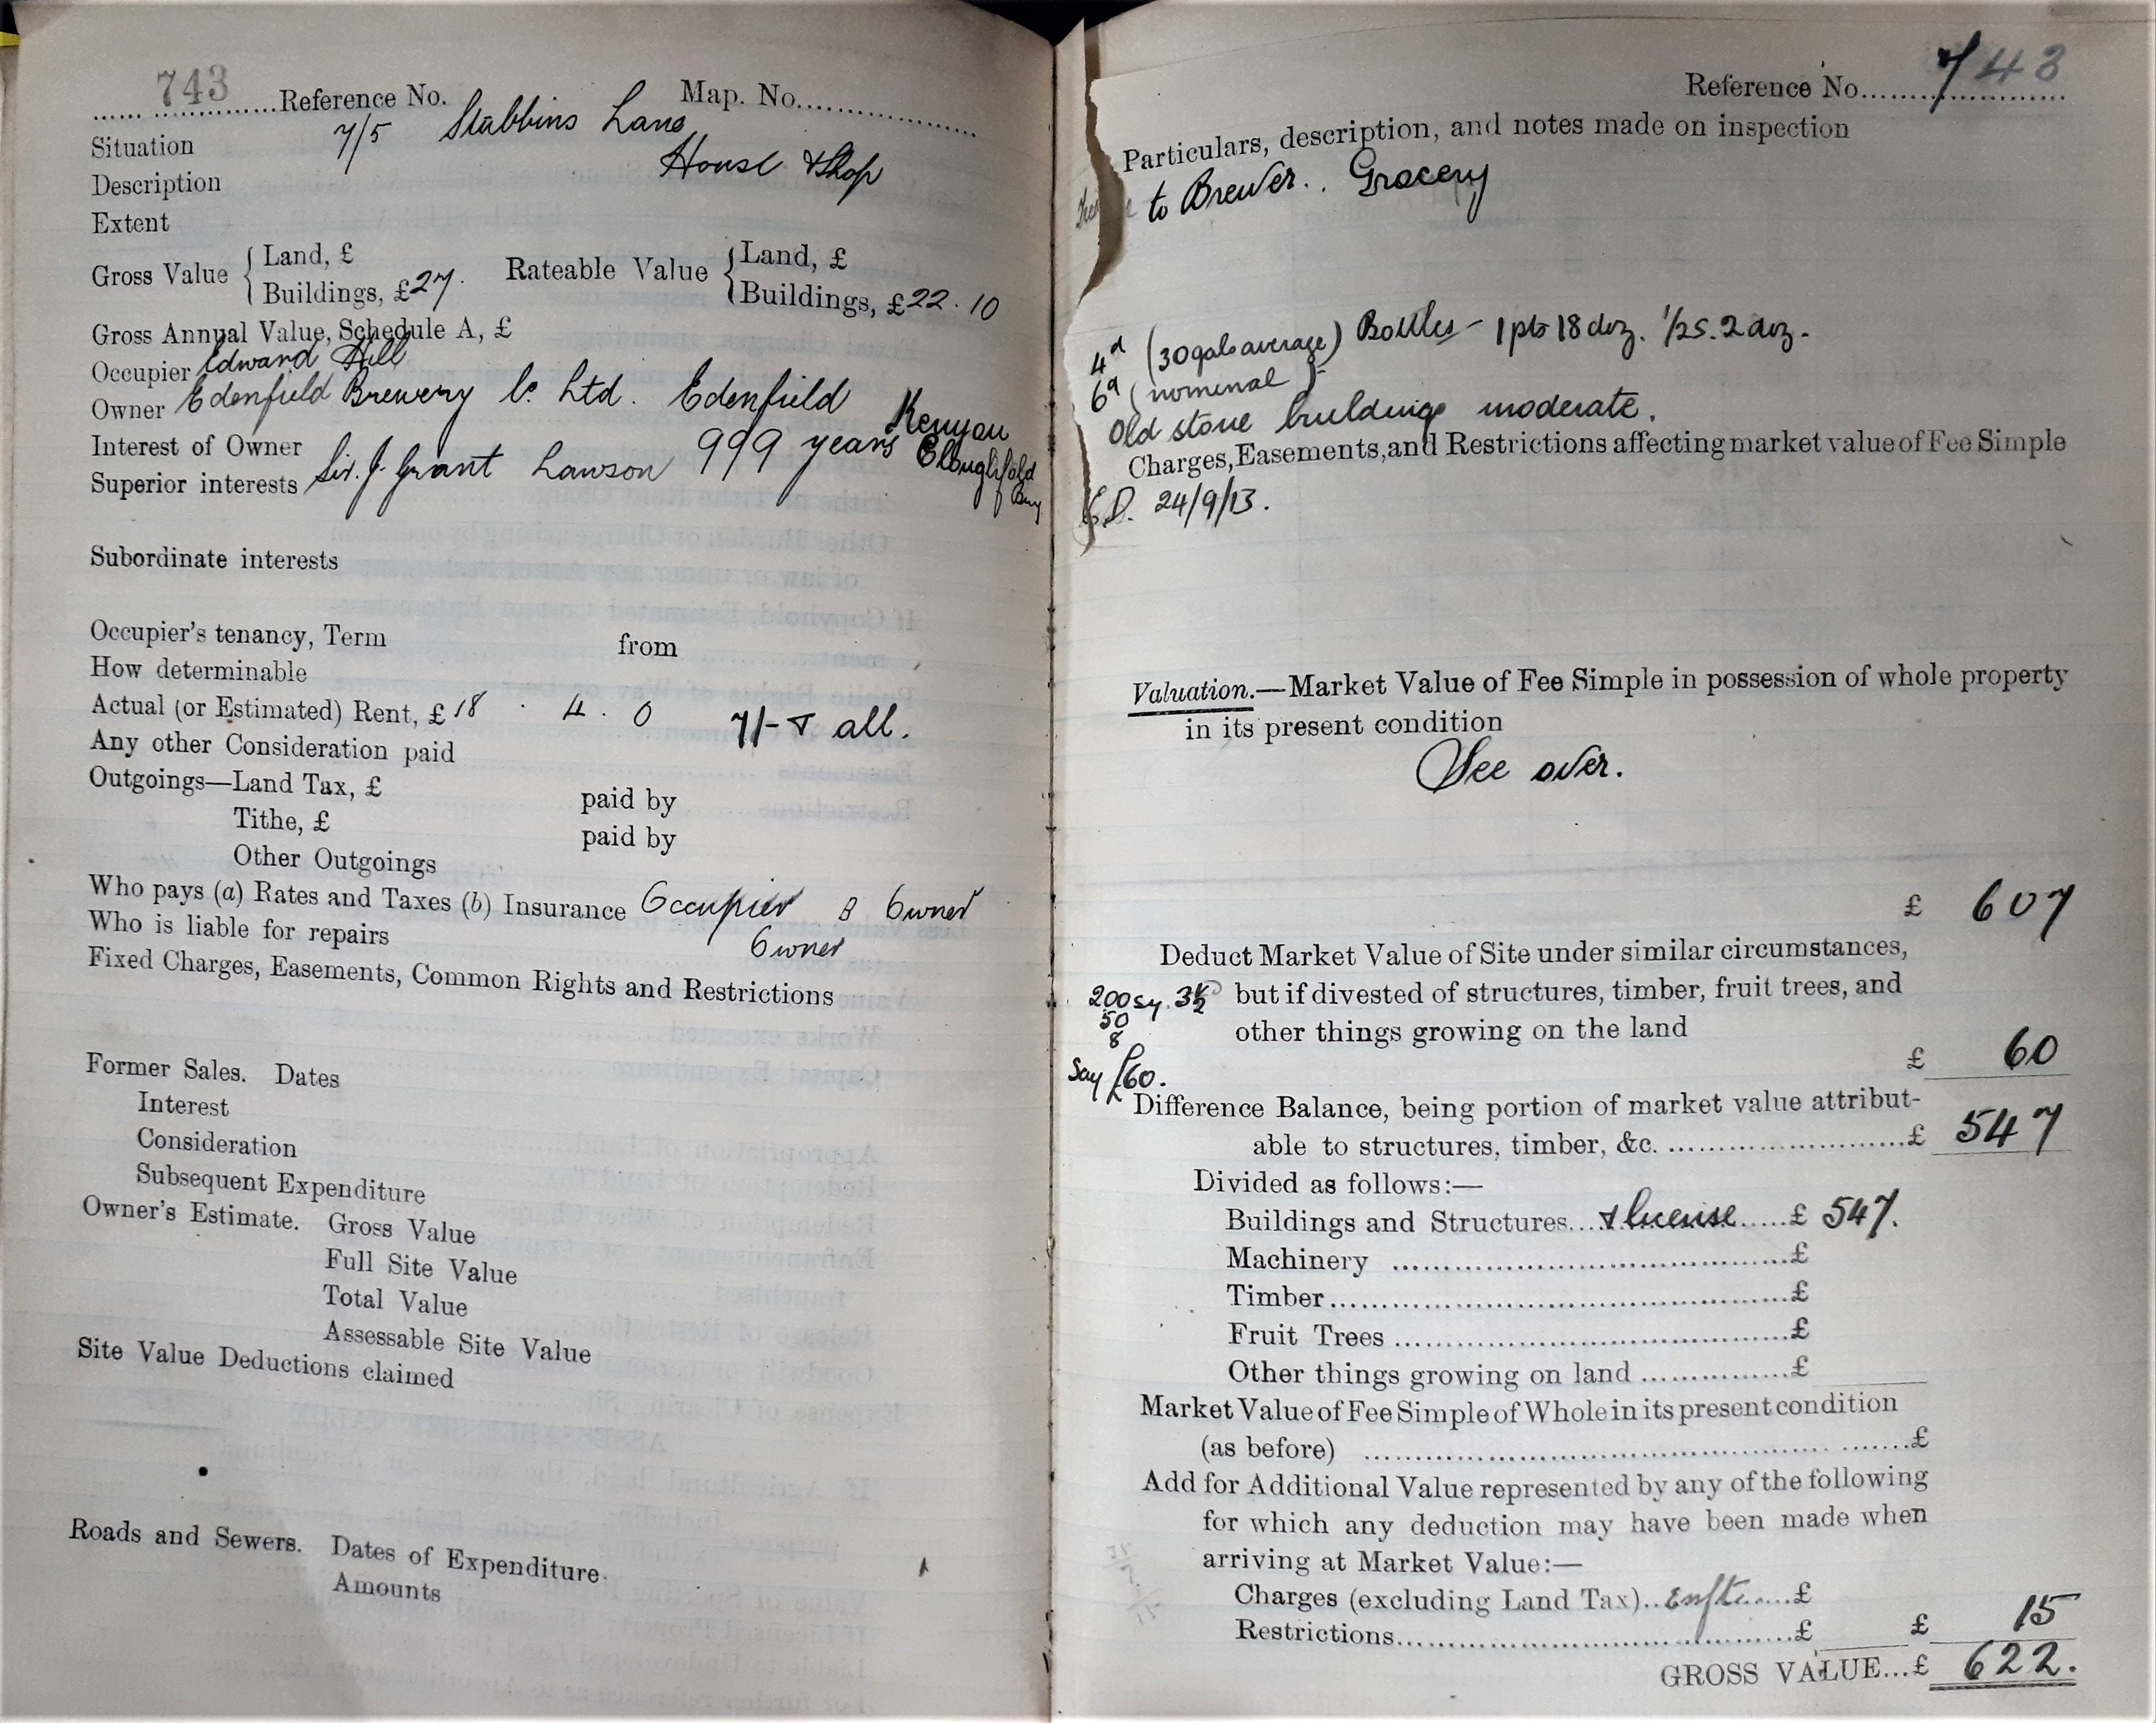 743 Reference No. Map. No.
Situation 7/5 Stubbins Lane
Description House & Shop
Extent
Gross Value { Land, £ Rateable Value { Land, £
Buildings, £27. Buildings, £22.10
Gross Annual Value, Schedule A, £
Occupier Edward Hill
Owner Edenfield Brewery Co. Ltd. Edenfield
Interest of Owner 999 years Kenyon
Superior interests Sir. J. Grant Lawson Cloughfold
Subordinate interests
Occupier's tenancy, Term from
How determinable
Actual (or Estimated) Rent, £18 . 4 . 0 7/- & all.
Any other Consideration paid
Outgoings—Land Tax, £ paid by
Tithe, £ paid by
Other Outgoings
Who pays (a) Rates and Taxes (b) Insurance Occupier B Owner
Who is liable for repairs Owner
Fixed Charges, Easements, Common Rights and Restrictions
Former Sales. Dates
Interest
Consideration
Subsequent Expenditure
Owner's Estimate. Gross Value
Full Site Value
Total Value
Assessable Site Value
Site Value Deductions claimed
Roads and Sewers. Dates of Expenditure
Amounts
Reference No. 743
Particulars, description, and notes made on inspection
to Brewer.. Grocery
4d (30 gals average) Bottles - 1 pts 18 doz. 1/2s. 2 doz.
6d (nominal)
Old stone building moderate.
Charges, Easements, and Restrictions affecting market value of Fee Simple
24/9/13.
Valuation.—Market Value of Fee Simple in possession of whole property
in its present condition
See over.
£ 607
Deduct Market Value of Site under similar circumstances,
200 sy. 3½ but if divested of structures, timber, fruit trees, and
50
8 other things growing on the land
£ 60
Say £60.
Difference Balance, being portion of market value attribut-
able to structures, timber, &c. £ 547
Divided as follows:—
Buildings and Structures & license £ 547.
Machinery £
Timber £
Fruit Trees £
Other things growing on land £
Market Value of Fee Simple of Whole in its present condition
(as before) £
Add for Additional Value represented by any of the following
for which any deduction may have been made when
arriving at Market Value:—
Charges (excluding Land Tax) £
Restrictions £ £ 15
GROSS VALUE...£ 622.